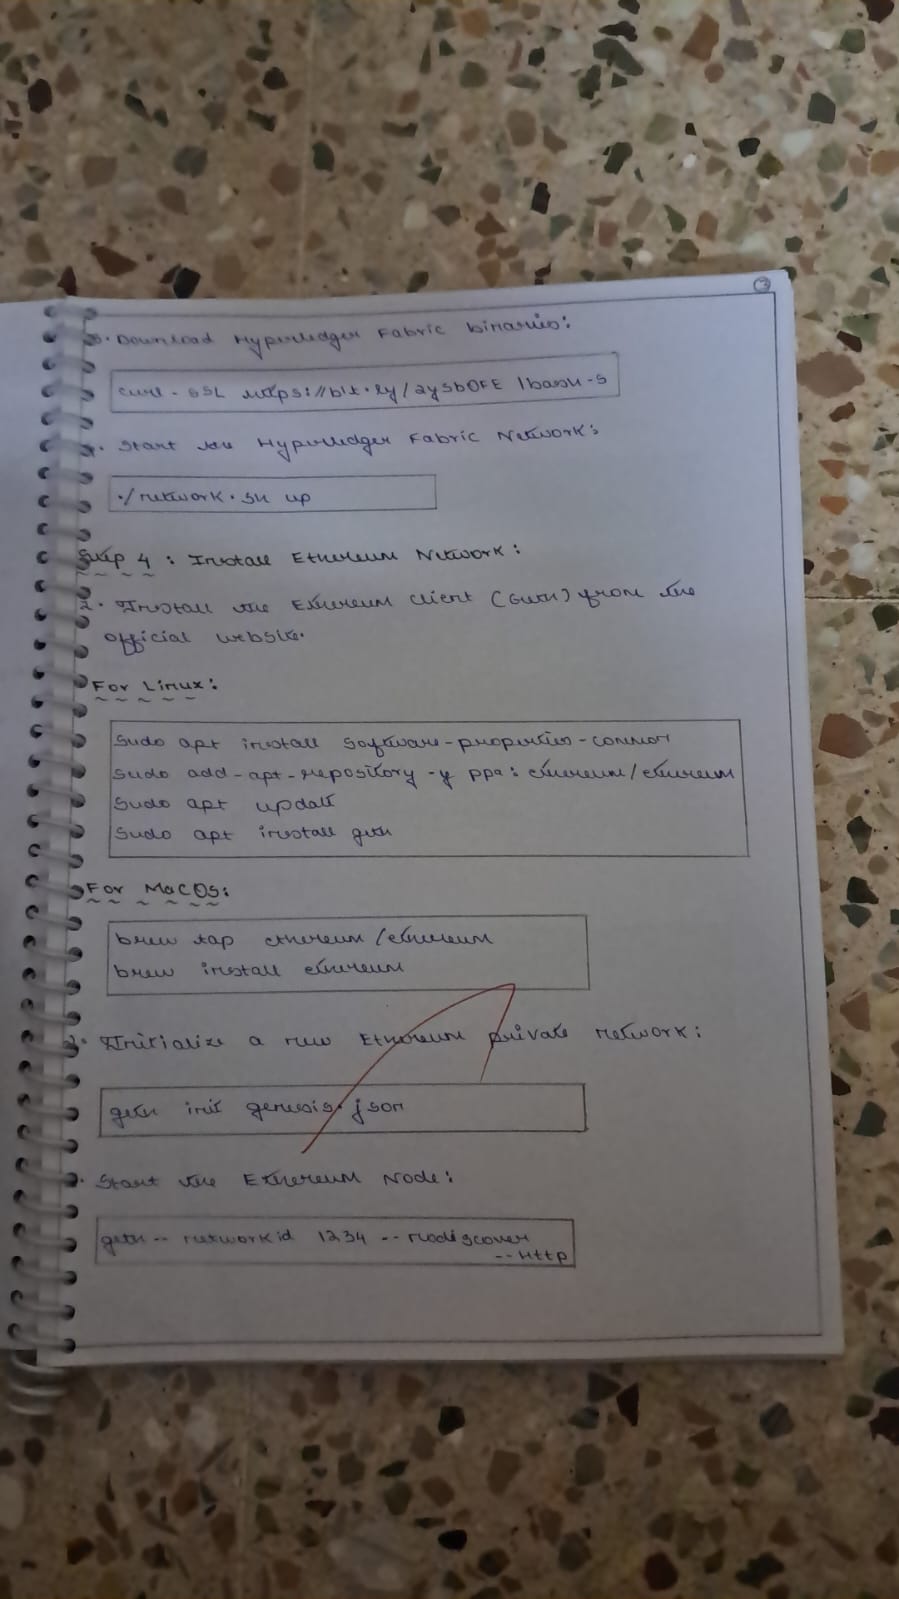 3
3. Download Hyperledger Fabric binaries:
curl -sSL https://bit.ly/2ysbOFE |bash -s
4. Start the Hyperledger Fabric Network:
./network.sh up
Step 4 : Install Ethereum Network:
1. Install the Ethereum client (Geth) from the
official website.
For Linux:
Sudo apt install software-properties-common
Sudo add-apt-repository -y ppa: ethereum/ethereum
Sudo apt update
Sudo apt install geth
For MacOS:
brew tap ethereum/ethereum
brew install ethereum
2. Initialize a new Ethereum private network:
geth init genesis.json
3. Start the Ethereum Node:
geth -- networkid 1234 -- nodiscover
-- Http